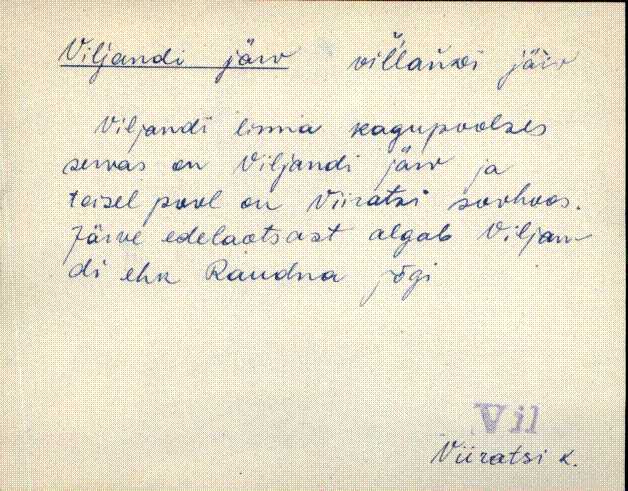 Viljandi järv villandi järv
Viljandi linna kagupoolses
servas on Viljandi järv ja
teisel pool on Viiratsi sovhoos.
Järve edelaotsast algab Viljan
di ehk Raudna jõgi
Vil
Viiratsi k.